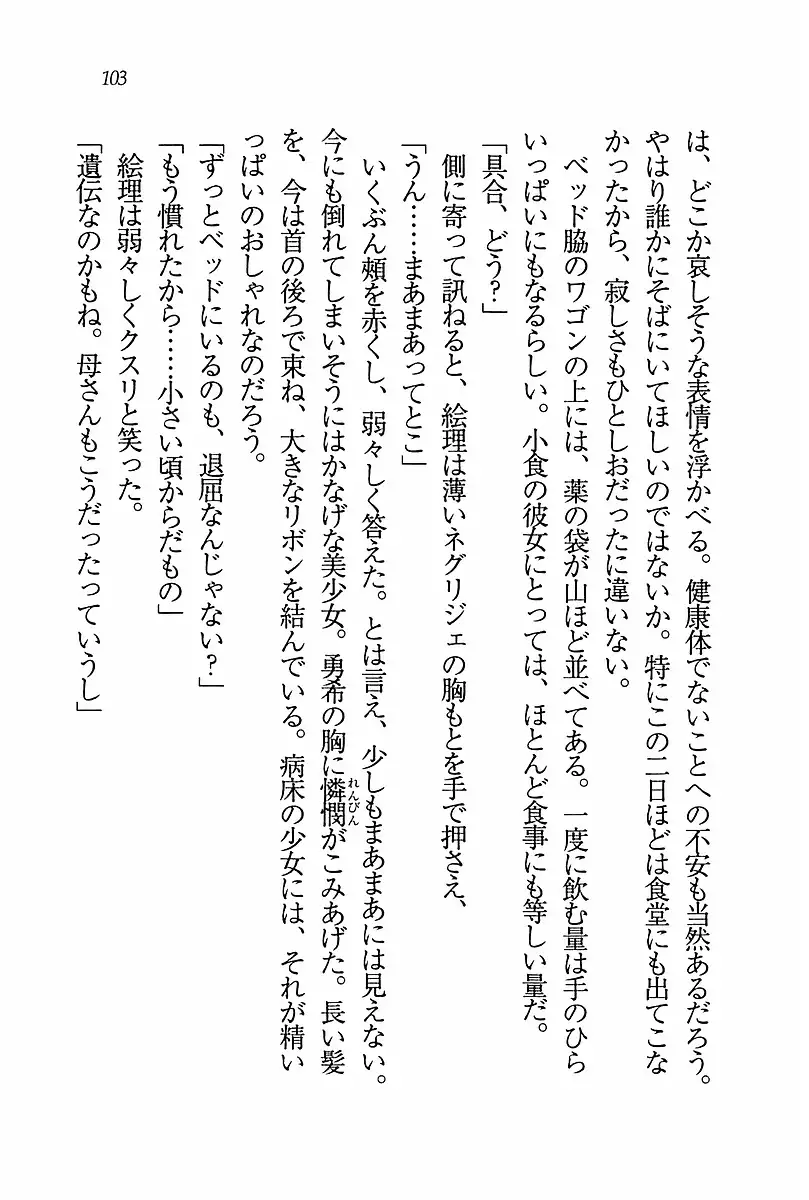 103
は、どこか哀しそうな表情を浮かべる。健康体でないことへの不安も当然あるだろう。
やはり誰かにそばにいてほしいのではないか。特にこの二日ほどは食堂にも出てこな
かったから、寂しさもひとしおだったに違いない。
ベッド脇のワゴンの上には、薬の袋が山ほど並べてある。一度に飲む量は手のひら
いっぱいにもなるらしい。小食の彼女にとっては、ほとんど食事にも等しい量だ。
「具合、どう?」
側に寄って訊ねると、絵理は薄いネグリジェの胸もとを手で押さえ、
「うん……まあまあってとこ」
いくぶん頰を赤くし、弱々しく答えた。とは言え、少しもまあまあには見えない。
今にも倒れてしまいそうにはかなげな美少女。勇希の胸に憐憫れんびんがこみあげた。長い髪
を、今は首の後ろで束ね、大きなリボンを結んでいる。病床の少女には、それが精い
っぱいのおしゃれなのだろう。
「ずっとベッドにいるのも、退屈なんじゃない?」
「もう慣れたから……小さい頃からだもの」
絵理は弱々しくクスリと笑った。
「遺伝なのかもね。母さんもこうだったっていうし」